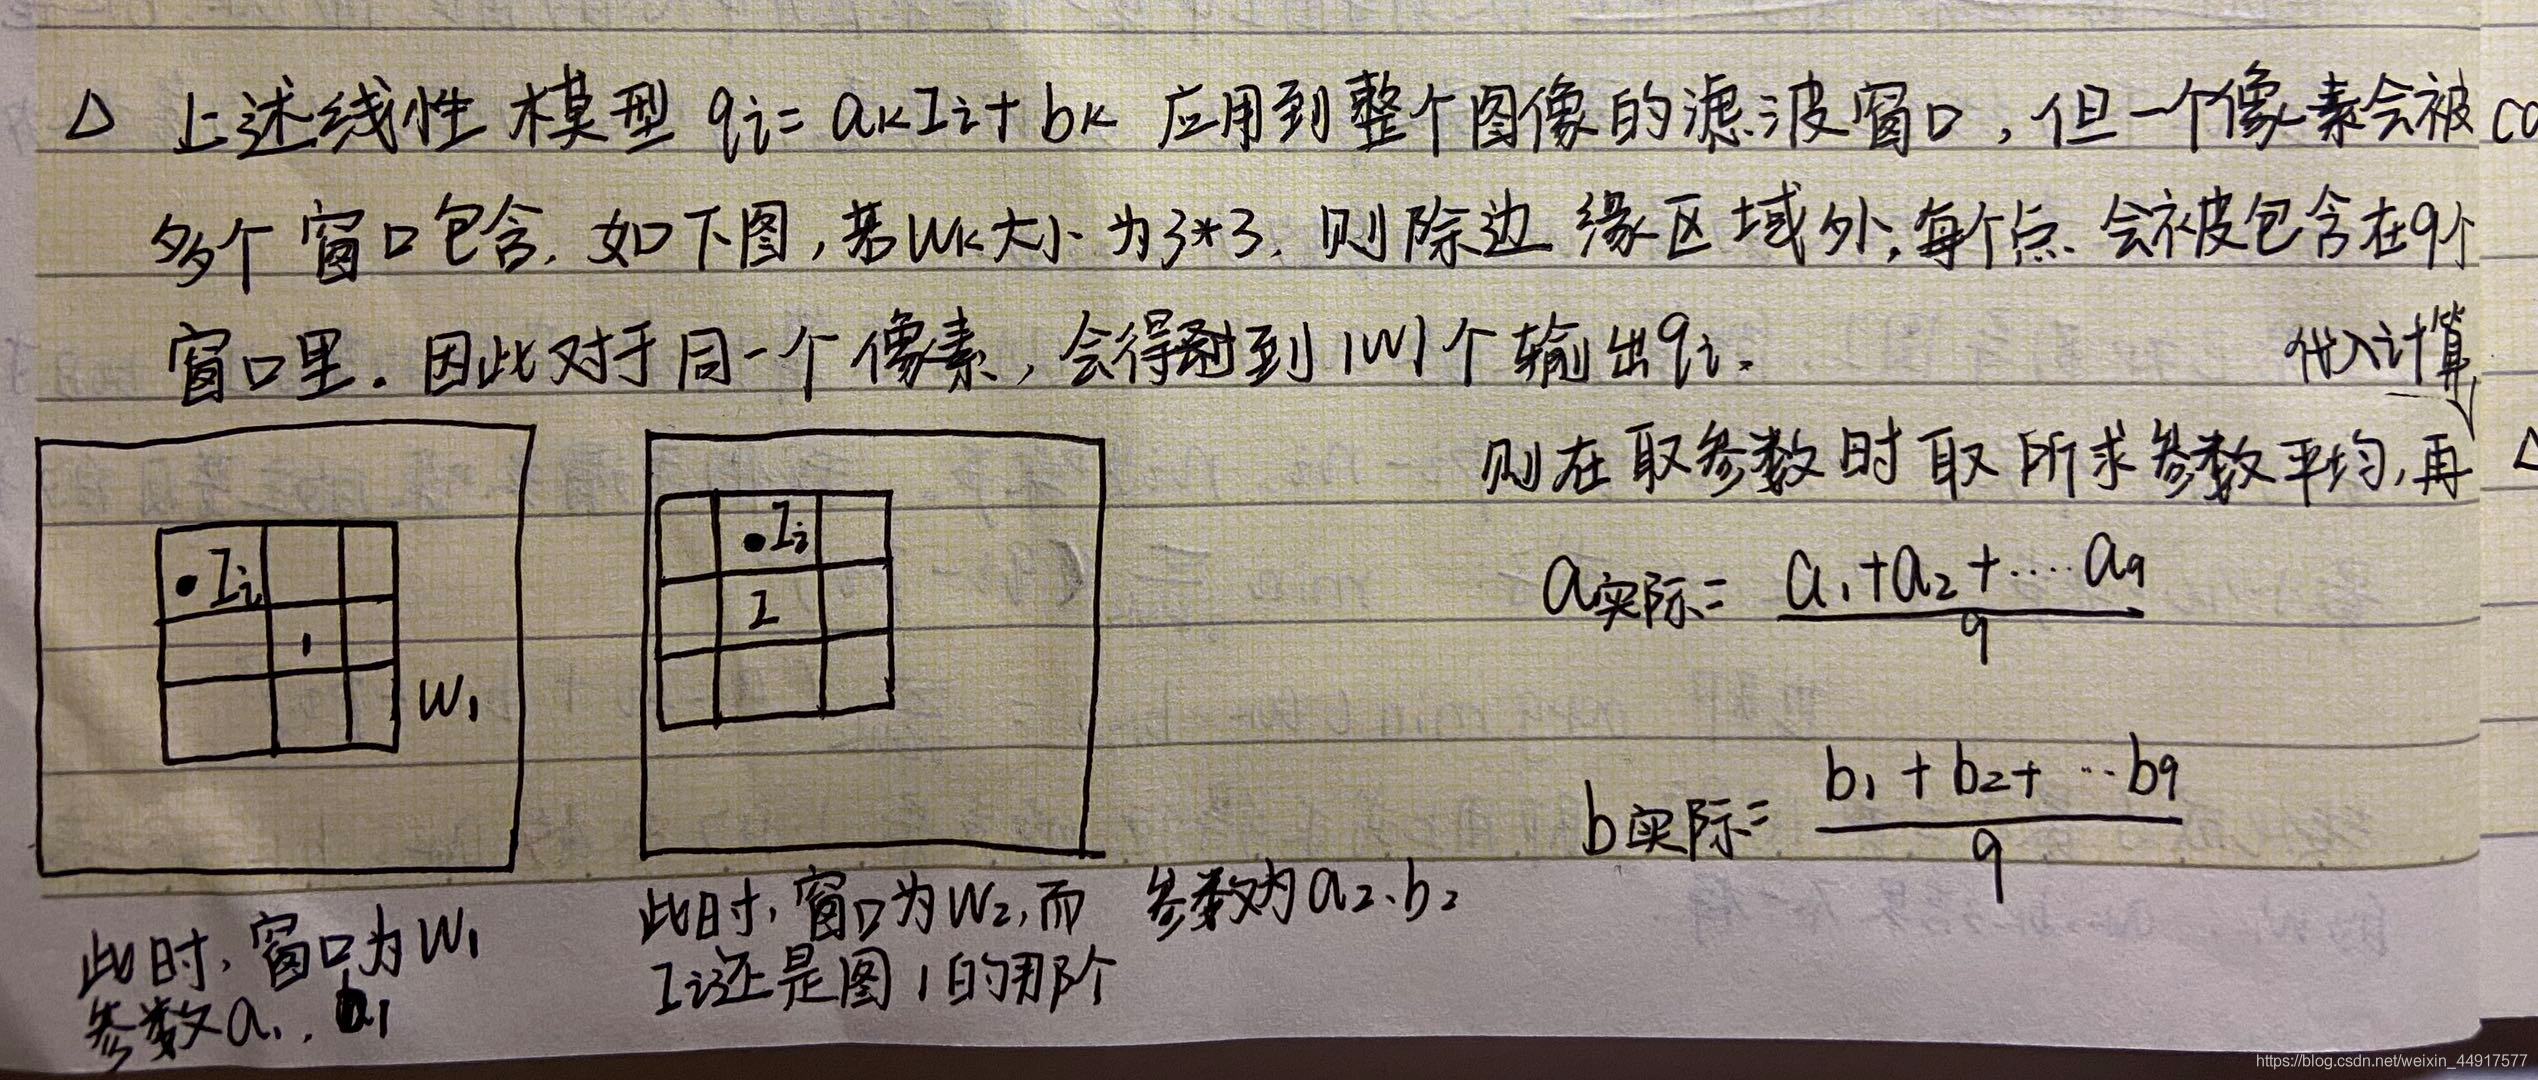 △ 上述线性模型 qi= akIi+bk 应用到整个图像的滤波窗口,但一个像素会被
多个窗口包含.如下图,若Wk大小为3*3.则除边缘区域外,每个点会被包含在9个
窗口里.因此对于同一个像素,会得到|W|个输出qi.
代入计算
则在取参数时取所求参数平均,再
a实际= a1+a2+....a9
9
b实际= b1+b2+...b9
9
•Ii
1
W1
•Ii
2
此时,窗口为W1
参数a1.b1
此时,窗口为W2,而 参数为a2、b2
Ii还是图1的那个
https://blog.csdn.net/weixin_44917577